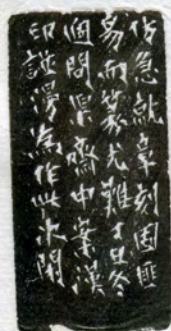 仿急就章刻固匪
易而篆尤難丁丑冬
過問齋中漢
印譜漫為作此次閑